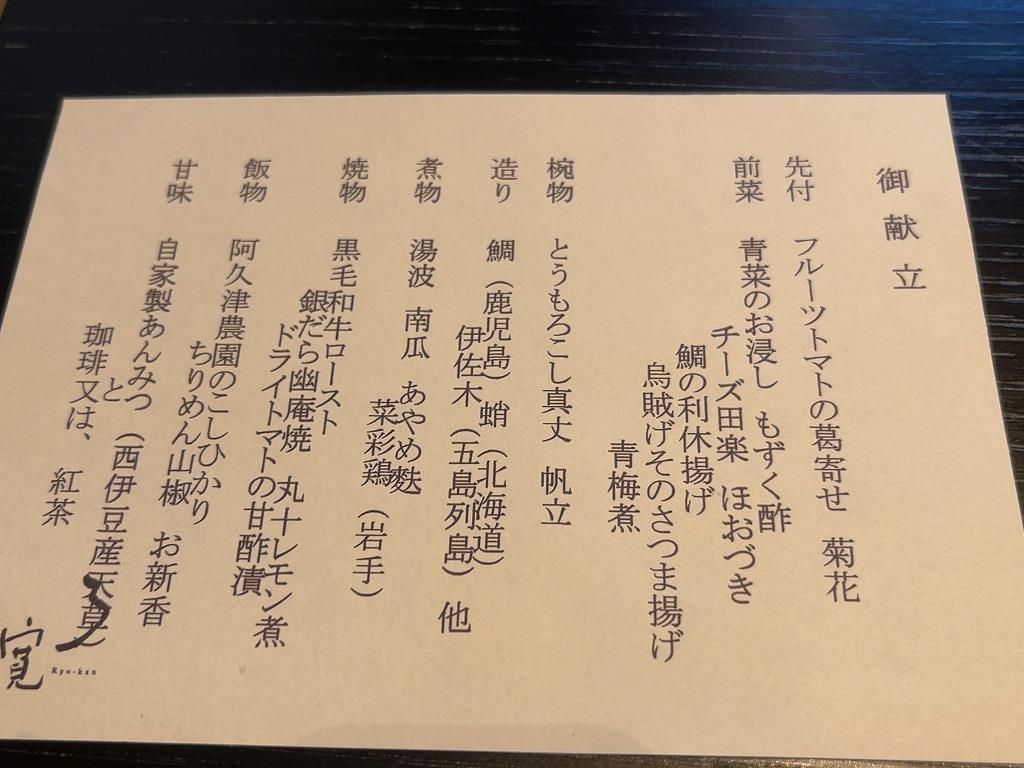 御献立
先付　フルーツトマトの葛寄せ　菊花
前菜　青菜のお浸し　もずく酢
チーズ田楽　ほおづき
鯛の利休揚げ
烏賊げそのさつま揚げ
青梅煮
椀物　とうもろこし真丈　帆立
造り　鯛（鹿児島）　蛸（北海道）
伊佐木（五島列島）他
煮物　湯波　南瓜　あやめ麩
菜彩鶏（岩手）
焼物　黒毛和牛ロースト
銀だら幽庵焼　丸十レモン煮
ドライトマトの甘酢漬
飯物　阿久津農園のこしひかり
ちりめん山椒　お新香
甘味　自家製あんみつ（西伊豆産天草）
と
珈琲又は、　紅茶
寛
Ryu-kan